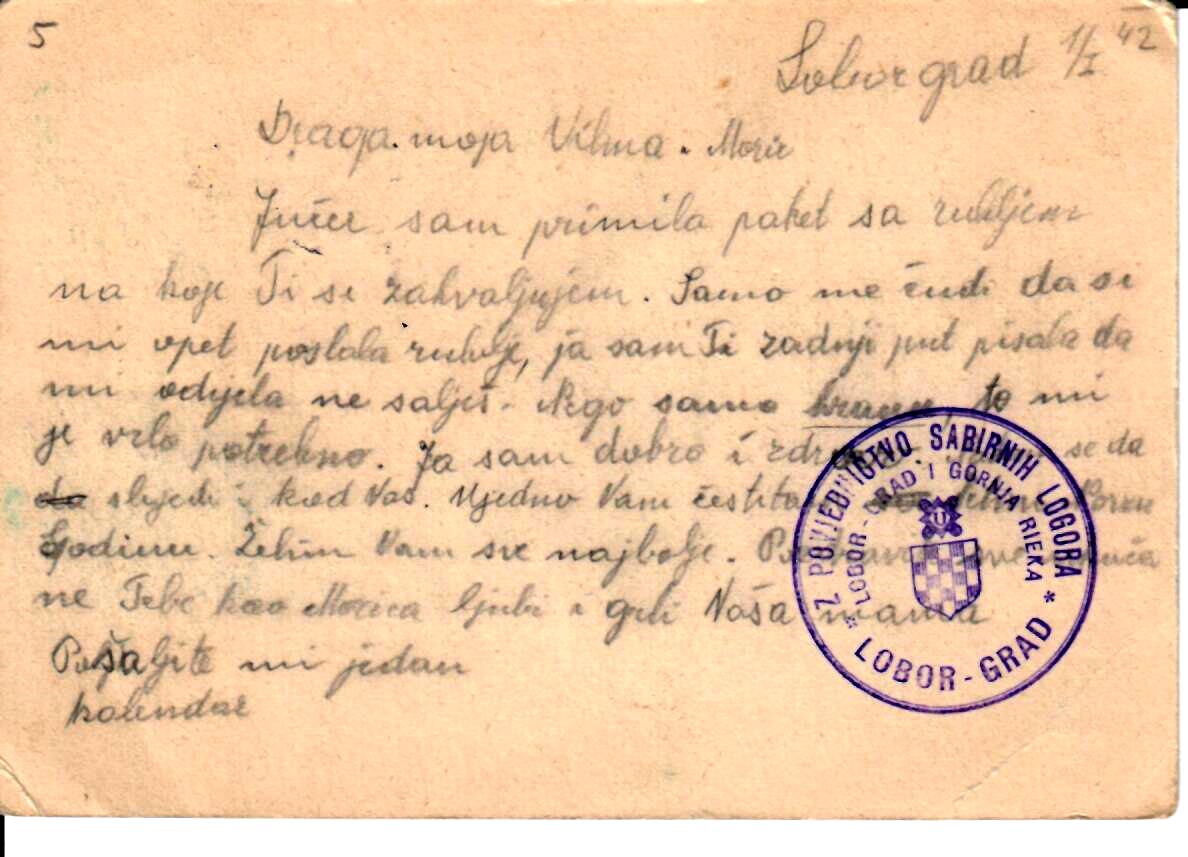 5
Loborgrad 1/I 42
Draga moja Vilma. Moric
Jučer sam primila paket sa rubljem
na koje Ti se zahvaljujem. Samo me čudi da si
mi opet poslala rublje, ja sam Ti zadnji put pisala da
mi odijela ne šalješ. Nego samo hranu, to mi
je vrlo potrebno. Ja sam dobro i se da
da slijedi i kod Vas. Ujedno Vam Novu
Godinu. Želim Vam sve najbolje.
ne Tebe kao Morica ljubi i grli Vaša mama
Pošaljite mi jedan
kalendar
Z POVJEDNIČTVO SABIRNIH LOGORA
* LOBOR-GRAD I GORNJA RIEKA *
LOBOR-GRAD
U